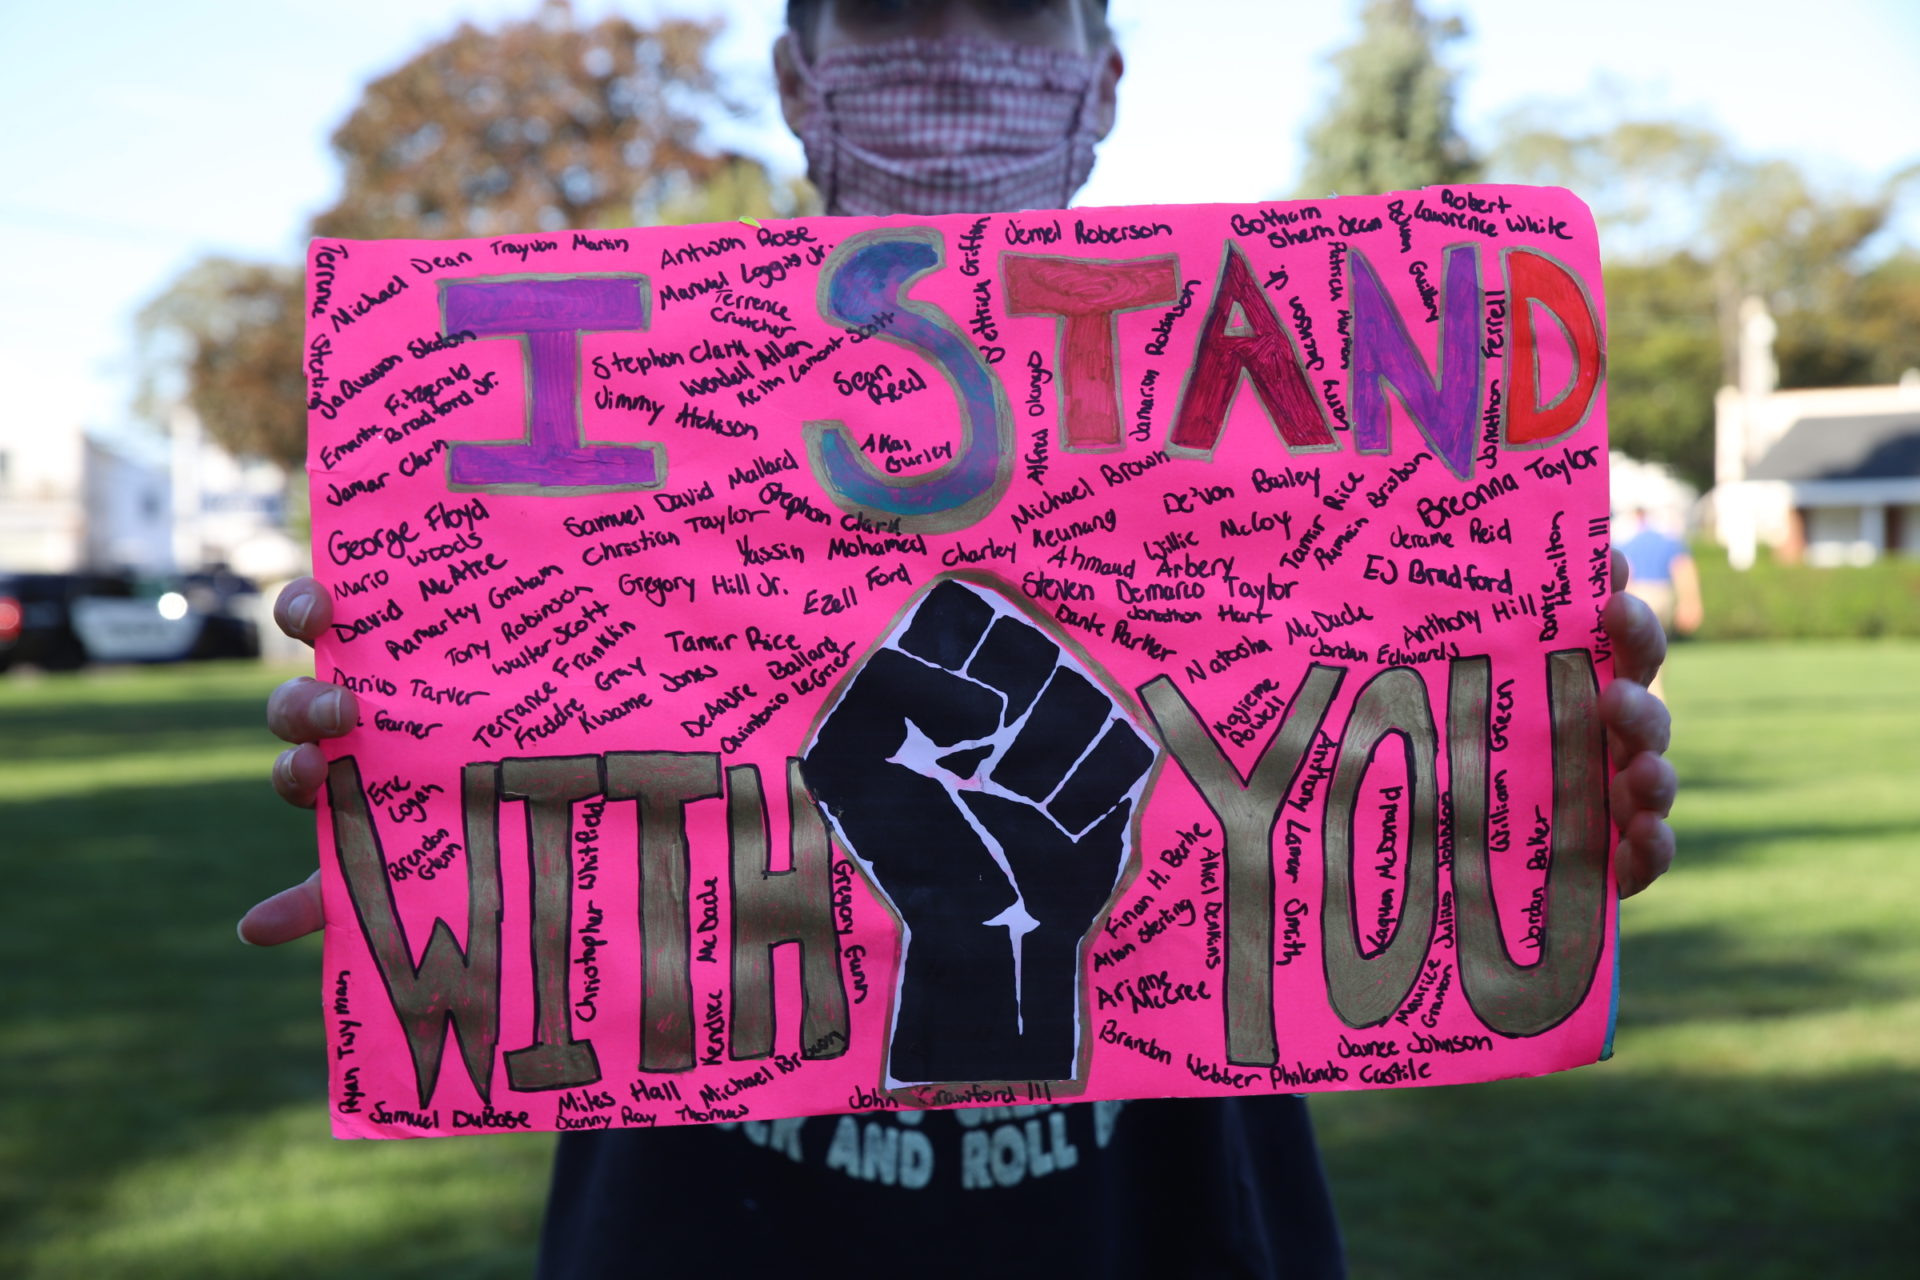 I STAND
WITH YOU
Terrence Sterling
Michael Dean
Trayvon Martin
Antwon Rose
Manuel Loggins Jr.
Terrence
Crutcher
Dettrick Griffin
Jemel Roberson
Botham
Shem Jean
Robert
Lawrence White
Devan Guillory
JaQuavon Slaton
Fitzgerald
Emantic Bradford Jr.
Jamar Clark
Stephon Clark
Wendell Allen
Keith Lamont Scott
Jimmy Atchison
Sean
Reed
Akai
Gurley
Alfred Olango
Jamarion Robinson
Harry Jackson Jr.
Patrick Harmon
Jonathon Ferrell
George Floyd
Mario Woods
David McAtee
Ramarley Graham
Tony Robinson
Walter Scott
Terrance Franklin
Freddie Gray
Kwame Jones
Darius Tarver
Garner
Samuel David Mallard
Christian Taylor
Stephon Clark
Yassin Mohamed
Gregory Hill Jr.
Ezell Ford
Tamir Rice
DeAndre Ballard
Quintonio LeGrier
Michael Brown
Charley Keunang
De'von Bailey
Willie McCoy
Ahmaud Arbery
Tamir Rice
Rumain Brisbon
Breonna Taylor
Jerame Reid
EJ Bradford
Steven Demarco Taylor
Jonathon Hart
Dante Parker
Natosha McDade
Anthony Hill
Jordan Edwards
Dontre
Hamilton
Victor White III
Kajieme
Powell
Eric
Logan
Brendon
Glenn
Christopher Whitfield
Kendrec McDade
Gregory Gunn
Finan H. Berhe
Alton Sterling
Akiel Denkins
Ariane
McCree
Anthony Lamar Smith
Kaquan McDonald
Julius Johnson
Maurice
Granton
William Green
Jordan Baker
Ryan Twyman
Samuel DuBose
Miles Hall
Danny Ray Thomas
Michael Brown
John Crawford III
Brandon Webber
Philando Castile
Jamee Johnson
AND ROLL